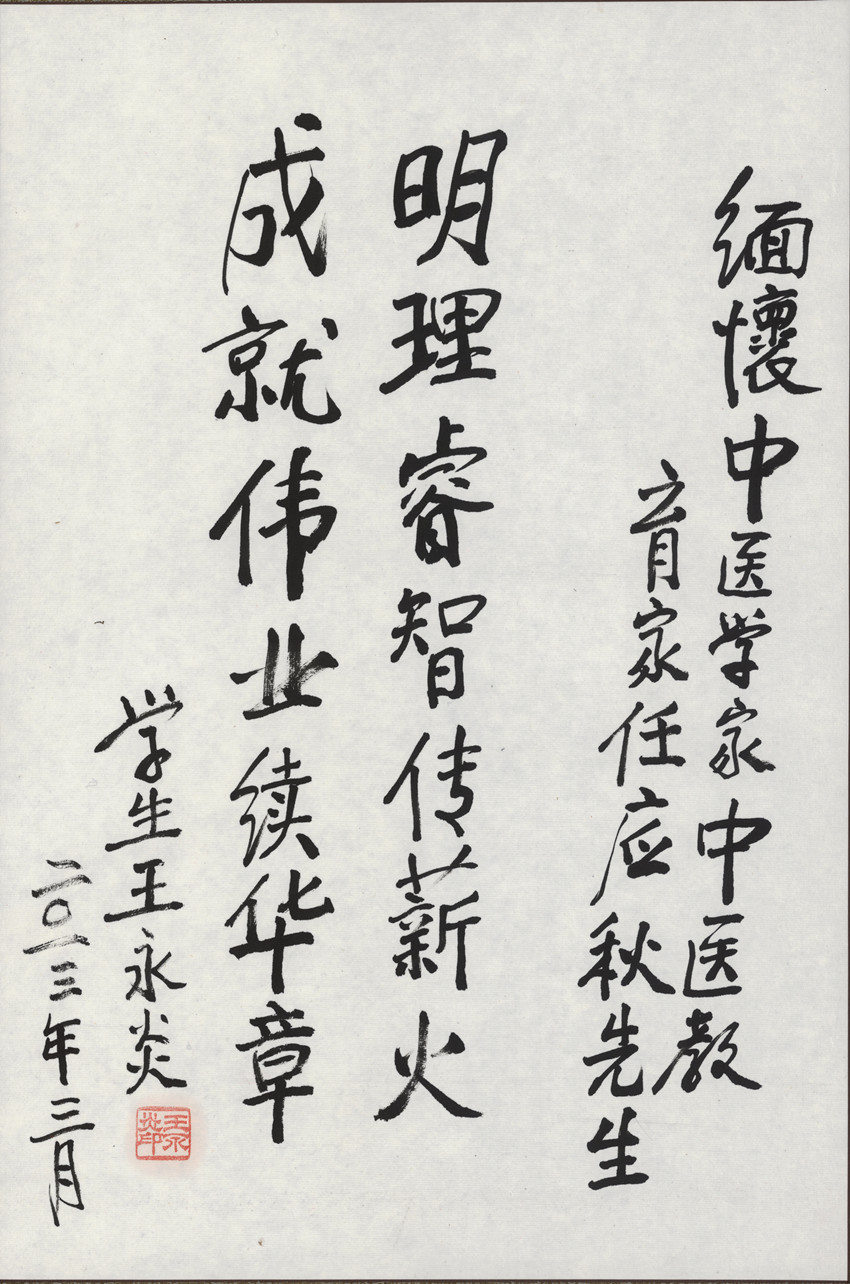 缅懷中医学家中医教
育家任应秋先生
明理睿智传薪火
成就伟业续华章
学生王永炎
二〇一三年三月
王永炎印